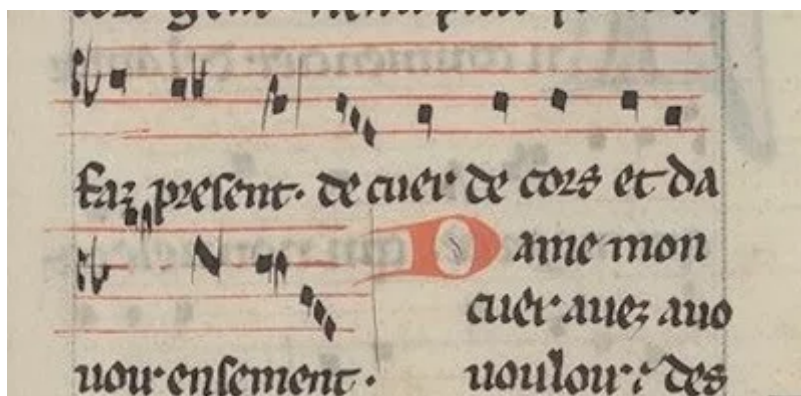 faz present. de cuer de cors et da
Dame mon
cuer auez auo
uour ensement. uoulour; des